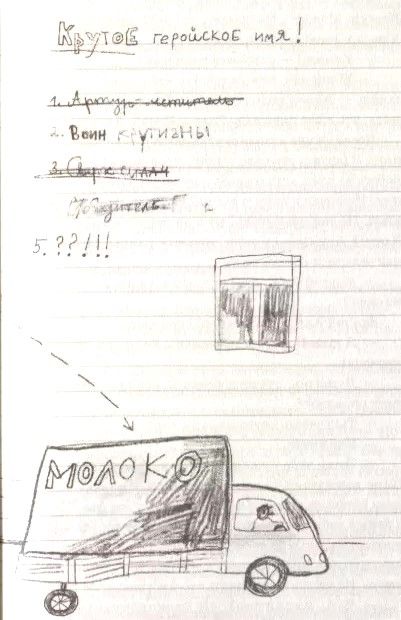 Крутое геройское имя!
1. Артур-мститель
2. Воин крутизны
3. Сверхсилач
5. ??!!!
МОЛОКО